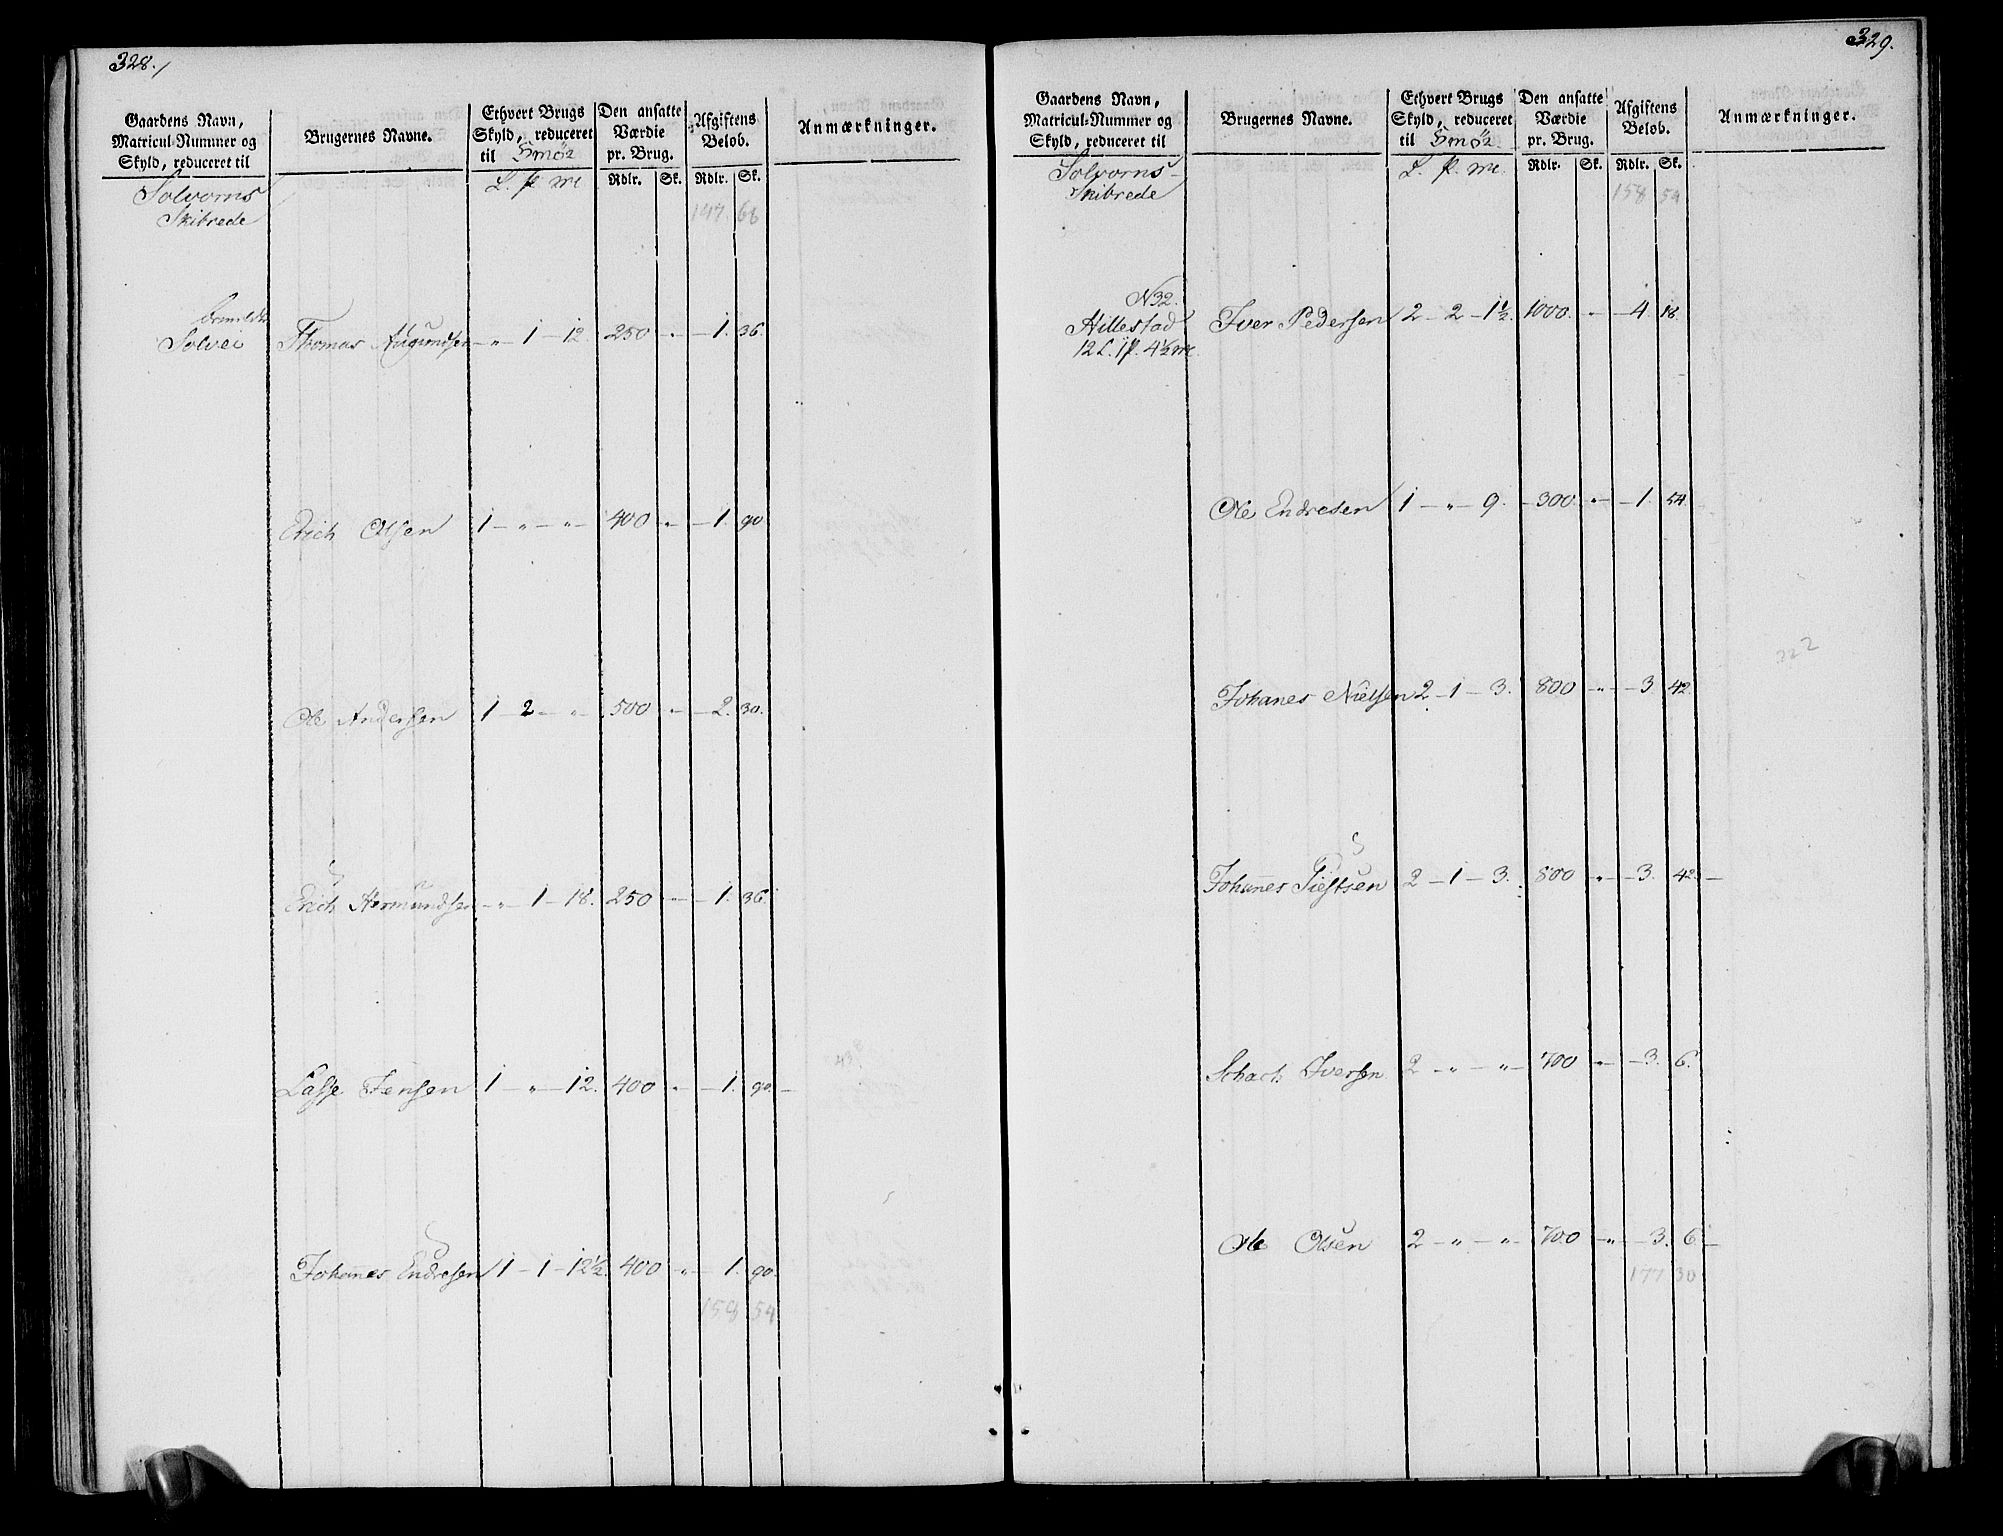 328.
Gaardens Navn, Matricul-Nummer og Skyld, reduceret til
Brugernes Navne.
Ethvert Brugs Skyld, reduceret til Smör
Den ansatte Værdie pr. Brug.
Afgiftens Beløb.
Anmærkninger.
L. p. mr
Rdlr. Sk. Rdlr. Sk.
Solvorns
Skibrede
147 68
Solvei Thomas Augundsen - " - 1 - 12. 250 " - 1. 36.
Erich Olsen 1 - " - " - 400 " - 1. 90
Ole Andersen 1 - 2 - " - 500 " - 2. 30.
Erich Hermundsen - " - 1 - 18. 250 - 1. 36.
Lasse Jensen 1 - " - 12. 400 " - 1. 90. -
Johannes Endresen 1 - 1 - 12½. 400 " - 1. 90.
158 54
329.
Gaardens Navn, Matricul-Nummer og Skyld, reduceret til
Brugernes Navne.
Ethvert Brugs Skyld, reduceret til Smör
Den ansatte Værdie pr. Brug.
Afgiftens Beløb.
Anmærkninger.
L. p. mr.
Rdlr. Sk. Rdlr. Sk.
Solvorns-
Skibrede
158 54
N 32.
Hillestad Iver Pedersen 2 - 2 - 1½. 1000. " - 4 18.
12 L. 1 p. 4½ mr.
Ole Endresen 1 - " - 9. - 300. " - 1. 54.
Johanes Nielsen 2 - 1 - 3. 800 " - 3. 42.
322
Johannes 2 - 1 - 3. 800 " - 3. 42. -
Schach Iversen 2 - " - " - 700 " - 3. 6.
Ole Olsen 2 - " - " - 700 " - 3. 6 -
177 30